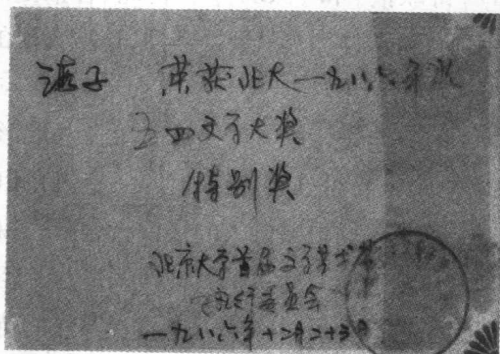 海子 荣获北大一九八六年度
五四文学大奖
特别奖
北京大学首届文学艺术节
委员会
一九八六年十二月二十三日